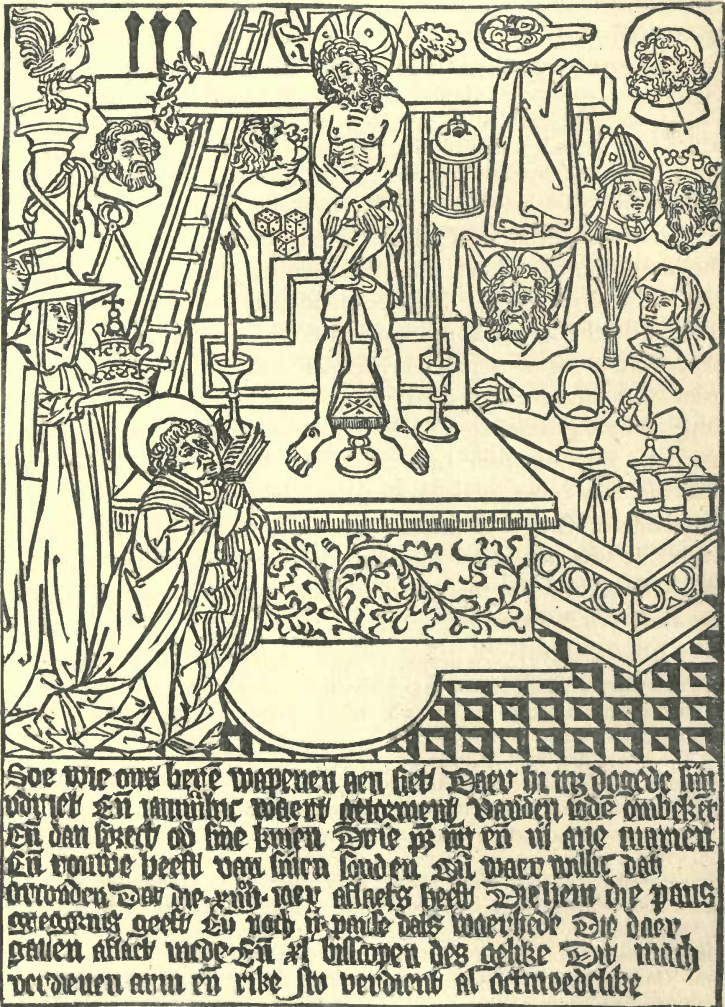 Soe wie ons heren wapenen aen siet Daer hi mz dogede sijn
vdriet En iam͞lic waert getorment Vanden iode onbekēt
En dan sprect op sine knien Drie pr̄ nr̄ en iij aue marien
En rouwe heeft van sinen sonden Vā waer willic dat
orconden Dat die xiiijᵐ iaer aflaets heeft Die hem die paus
gregorius geeft En noch ij pause dats waerhede Die daer
gauen aflaet mede En xl bisscopen des gelike Dit mach
verdienen arm en rike Siv verdient al oetmoedelike